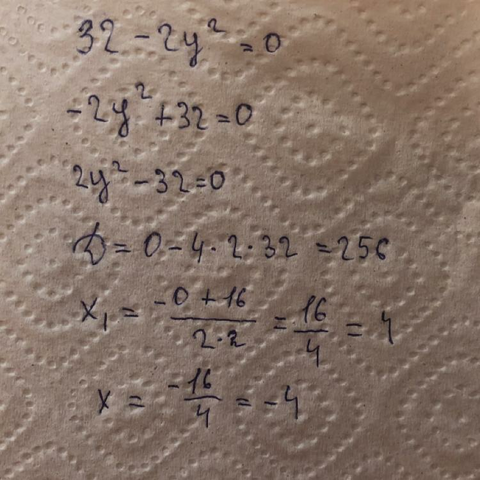 32 - 2y² = 0
-2y² + 32 = 0
2y² - 32 = 0
D = 0 - 4 · 2 · 32 = 256
x₁ = (-0 + 16)/(2 · 2) = 16/4 = 4
x = -16/4 = -4